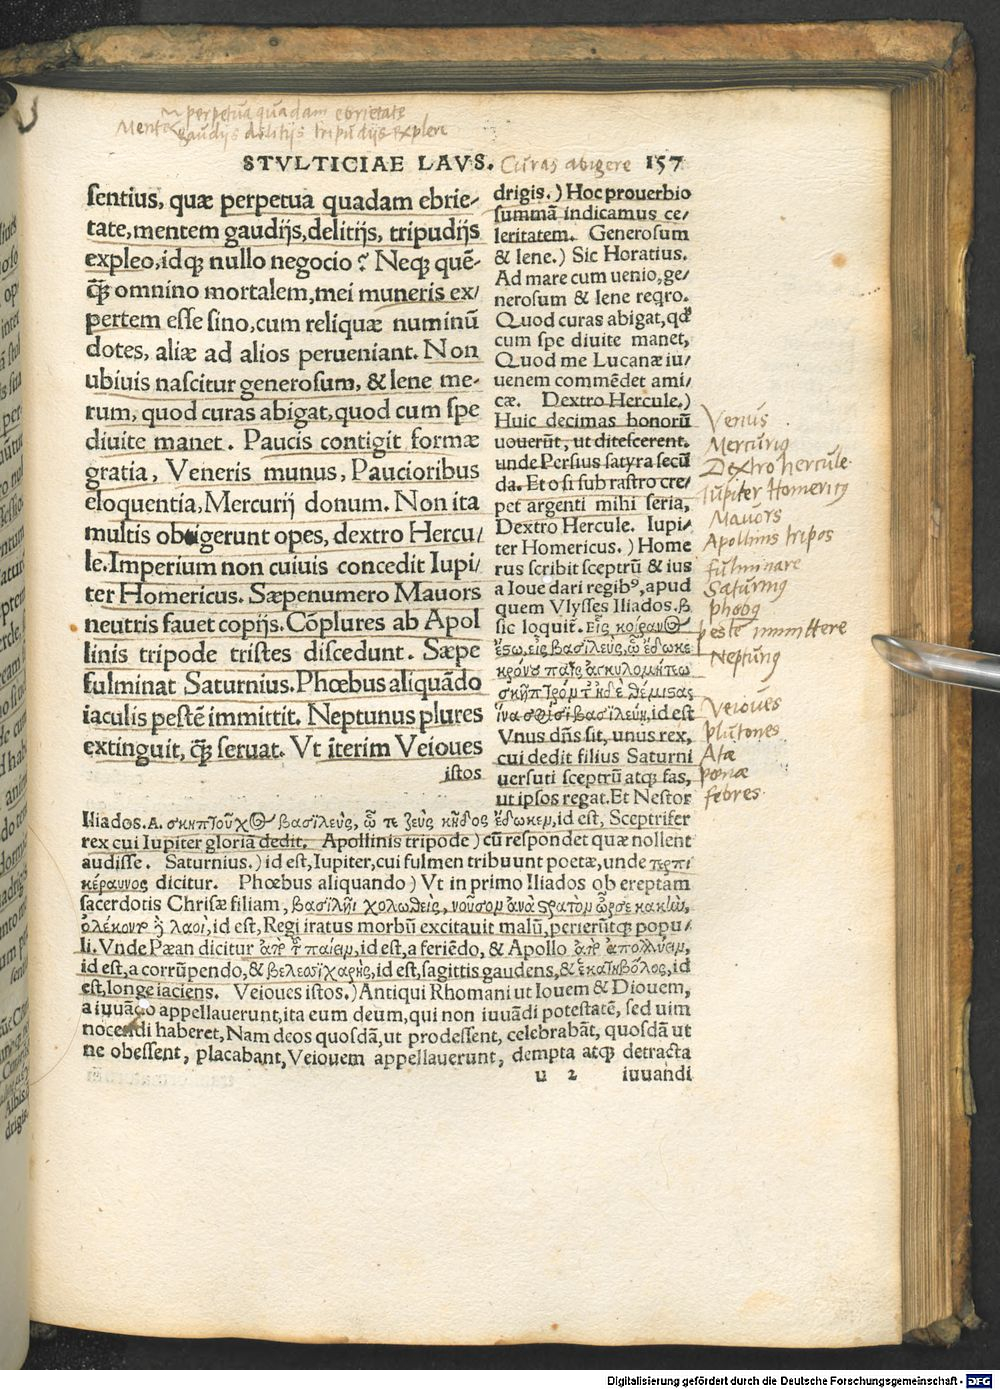 perpetua quadam ebrietate
Mentē gaudijs delitijs tripudijs explere
STVLTICIAE LAVS. Curas abigere 157
sentius, quæ perpetua quadam ebrie-
tate, mentem gaudijs, delitijs, tripudijs
expleo, idq; nullo negocio? Neq; quē-
q̄ omnino mortalem, mei muneris ex/
pertem esse sino, cum reliquæ numinū
dotes, aliæ ad alios perueniant. Non
ubiuis nascitur generosum, & lene me-
rum, quod curas abigat, quod cum spe
diuite manet. Paucis contigit formæ
gratia, Veneris munus, Paucioribus
eloquentia, Mercurij donum. Non ita
multis obtigerunt opes, dextro Hercu/
le. Imperium non cuiuis concedit Iupi/
ter Homericus. Sæpenumero Mauors
neutris fauet copijs. Cōplures ab Apol
linis tripode tristes discedunt. Sæpe
fulminat Saturnius. Phœbus aliquādo
iaculis pestē immittit. Neptunus plures
extinguit, q̄ seruat. Vt īterim Veioues
istos
drigis.) Hoc prouerbio
summā indicamus ce/
leritatem. Generosum
& lene.) Sic Horatius.
Ad mare cum uenio, ge/
nerosum & lene reqro.
Quod curas abigat, qd̛
cum spe diuite manet,
Quod me Lucanæ iu/
uenem commēdet ami/
cæ. Dextro Hercule.)
Huic decimas honorū
uouerūt, ut ditescerent.
unde Persius satyra secū
da. Et o si sub rastro cre/
pet argenti mihi seria,
Dextro Hercule. Iupi/
ter Homericus.) Home
rus scribit sceptrū & ius
a Ioue dari regibꝰ, apud
quem Vlysses Iliados. β
sic loquit̄. εἷς κοίρανος
ἔστω, εἷς βασιλεύς, ᾧ ἔδωκε
κρόνου παῖς ἀγκυλομήτεω
σκῆπτρόν τ' ἠδὲ θέμιστας
ἵνα σφίσι βασιλεύῃ, id est
Vnus dn̄s sit, unus rex,
cui dedit filius Saturni
uersuti sceptrū atq; fas,
ut ipsos regat. Et Nestor
Venus
Mercuriꝰ
Dextro hercule
Iupiter Homericꝰ
Mauors
Apollinis tripos
fulminare
Saturniꝰ
phœbꝰ
peste immittere
Neptunꝰ
Veioues
plutones
Atæ
pœnæ
febres
Iliados. A. σκηπτοῦχος βασιλεύς, ᾧ τε ζεὺς κῦδος ἔδωκεν, id est, Sceptrifer
rex cui Iupiter gloriā dedit. Apollinis tripode) cū respondet quæ nollent
audisse. Saturnius.) id est, Iupiter, cui fulmen tribuunt poetæ, unde τερπι
κέραυνος dicitur. Phœbus aliquando) Vt in primo Iliados ob ereptam
sacerdotis Chrisæ filiam, βασιλῆι χολωθείς, νοῦσον ἀνὰ στρατὸν ὦρσε κακὴν,
ὀλέκοντο δὲ λαοί, id est, Regi iratus morbū excitauit malū, perierūtq; popu/
li. Vnde Pæan dicitur ἀπὸ τοῦ παίειν, id est, a feriēdo, & Apollo ἀπὸ ἀπολλύειν,
id est, a corrūpendo, & βελεσσιχαρής, id est, sagittis gaudens, & ἑκατηβόλος, id
est, longe iaciens. Veioues istos.) Antiqui Rhomani ut Iouem & Diouem,
a iuuādo appellauerunt, ita eum deum, qui non iuuādi potestatē, sed uim
nocendi haberet, Nam deos quosdā, ut prodessent, celebrabāt, quosdā ut
ne obessent, placabant, Veiouem appellauerunt, dempta atq; detracta
u 2 iuuandi
Digitalisierung gefördert durch die Deutsche Forschungsgemeinschaft - DFG